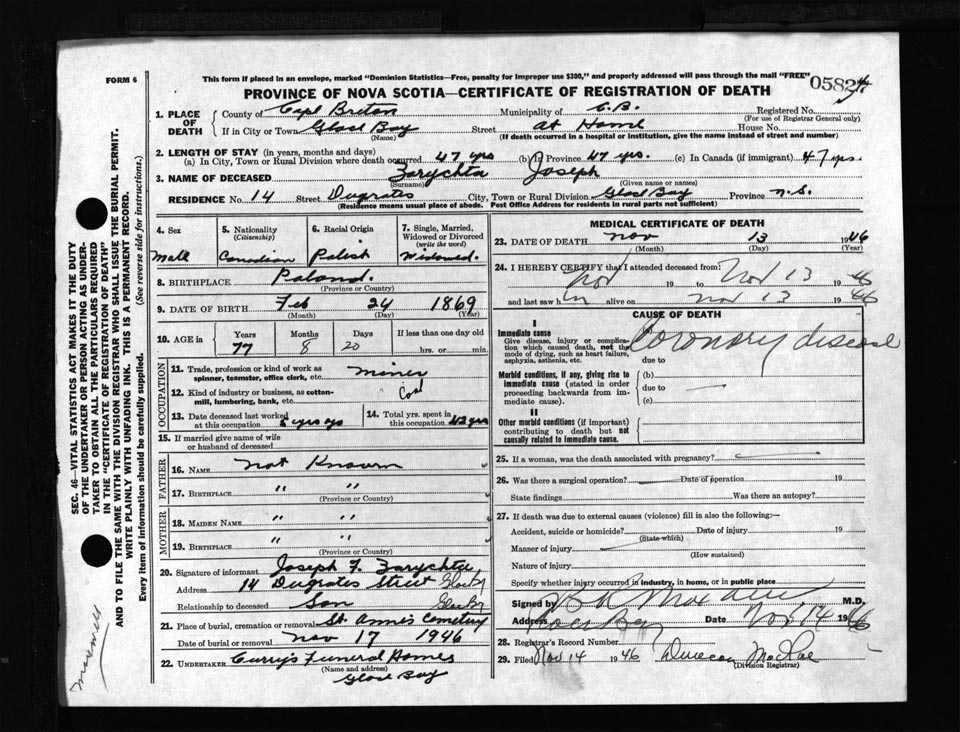 FORM 6
This form if placed in an envelope, marked "Dominion Statistics—Free, penalty for improper use $300," and properly addressed will pass through the mail "FREE"
PROVINCE OF NOVA SCOTIA—CERTIFICATE OF REGISTRATION OF DEATH
1. PLACE OF DEATH
County of Cape Breton Municipality of C.B. Registered No.
(For use of Registrar General only)
If in City or Town Glace Bay Street At Home House No.
(Name) (If death occurred in a hospital or institution, give the name instead of street and number)
2. LENGTH OF STAY (in years, months and days)
(a) In City, Town or Rural Division where death occurred 47 yrs (b) In Province 47 yrs. (c) In Canada (if immigrant) 47 yrs.
3. NAME OF DECEASED Zarychta Joseph
(Surname) (Given name or names)
RESIDENCE No. 14 Street City, Town or Rural Division Glace Bay Province N.S.
(Residence means usual place of abode. Post Office Address for residents in rural parts not sufficient)
4. Sex
Male
5. Nationality (Citizenship)
Canadian
6. Racial Origin
Polish
7. Single, Married, Widowed or Divorced (write the word)
Widowed.
8. BIRTHPLACE Poland.
(Province or Country)
9. DATE OF BIRTH Feb 24 1869
(Month) (Day) (Year)
10. AGE in
Years Months Days If less than one day old
77 8 20 hrs. or min.
OCCUPATION
11. Trade, profession or kind of work as spinner, teamster, office clerk, etc. Miner
12. Kind of industry or business, as cotton-mill, lumbering, bank, etc. Coal
13. Date deceased last worked at this occupation 5 yrs ago
14. Total yrs. spent in this occupation 42 yrs
15. If married give name of wife or husband of deceased
FATHER
16. NAME Not Known
17. BIRTHPLACE " "
(Province or Country)
MOTHER
18. MAIDEN NAME " "
19. BIRTHPLACE " "
(Province or Country)
20. Signature of informant Joseph F. Zarychta
Address 14 Street Glace Bay
Relationship to deceased Son Glace Bay
21. Place of burial, cremation or removal St. Anne's Cemetery
Date of burial or removal Nov 17 1946
22. UNDERTAKER Curry's Funeral Homes
(Name and address)
Glace Bay
MEDICAL CERTIFICATE OF DEATH
23. DATE OF DEATH Nov 13 1946
(Month) (Day) (Year)
24. I HEREBY CERTIFY that I attended deceased from:
Nov 19 to Nov 13 1946
and last saw him alive on Nov 13 1946
CAUSE OF DEATH
I
Immediate cause
Give disease, injury or complication which caused death, not the mode of dying, such as heart failure, asphyxia, asthenia, etc.
Coronary disease
due to
Morbid conditions, if any, giving rise to immediate cause (stated in order proceeding backwards from immediate cause).
(b)
due to
(c)
II
Other morbid conditions (if important) contributing to death but not causally related to immediate cause.
25. If a woman, was the death associated with pregnancy?
26. Was there a surgical operation? Date of operation 19
State findings Was there an autopsy?
27. If death was due to external causes (violence) fill in also the following:—
Accident, suicide or homicide? Date of injury 19
(State which)
Manner of injury
(How sustained)
Nature of injury
Specify whether injury occurred in industry, in home, or in public place
Signed by M.D.
Address Glace Bay Date Nov 14 1946
28. Registrar's Record Number
29. Filed Nov 14 1946 Duncan MacRae
(Division Registrar)
SEC. 46—VITAL STATISTICS ACT MAKES IT THE DUTY
OF THE UNDERTAKER OR PERSON ACTING AS UNDER-
TAKER TO OBTAIN ALL THE PARTICULARS REQUIRED
IN THE "CERTIFICATE OF REGISTRATION OF DEATH"
AND TO FILE THE SAME WITH THE DIVISION REGISTRAR WHO SHALL ISSUE THE BURIAL PERMIT.
WRITE PLAINLY WITH UNFADING INK. THIS IS A PERMANENT RECORD.
Every item of information should be carefully supplied. (See reverse side for instructions.)